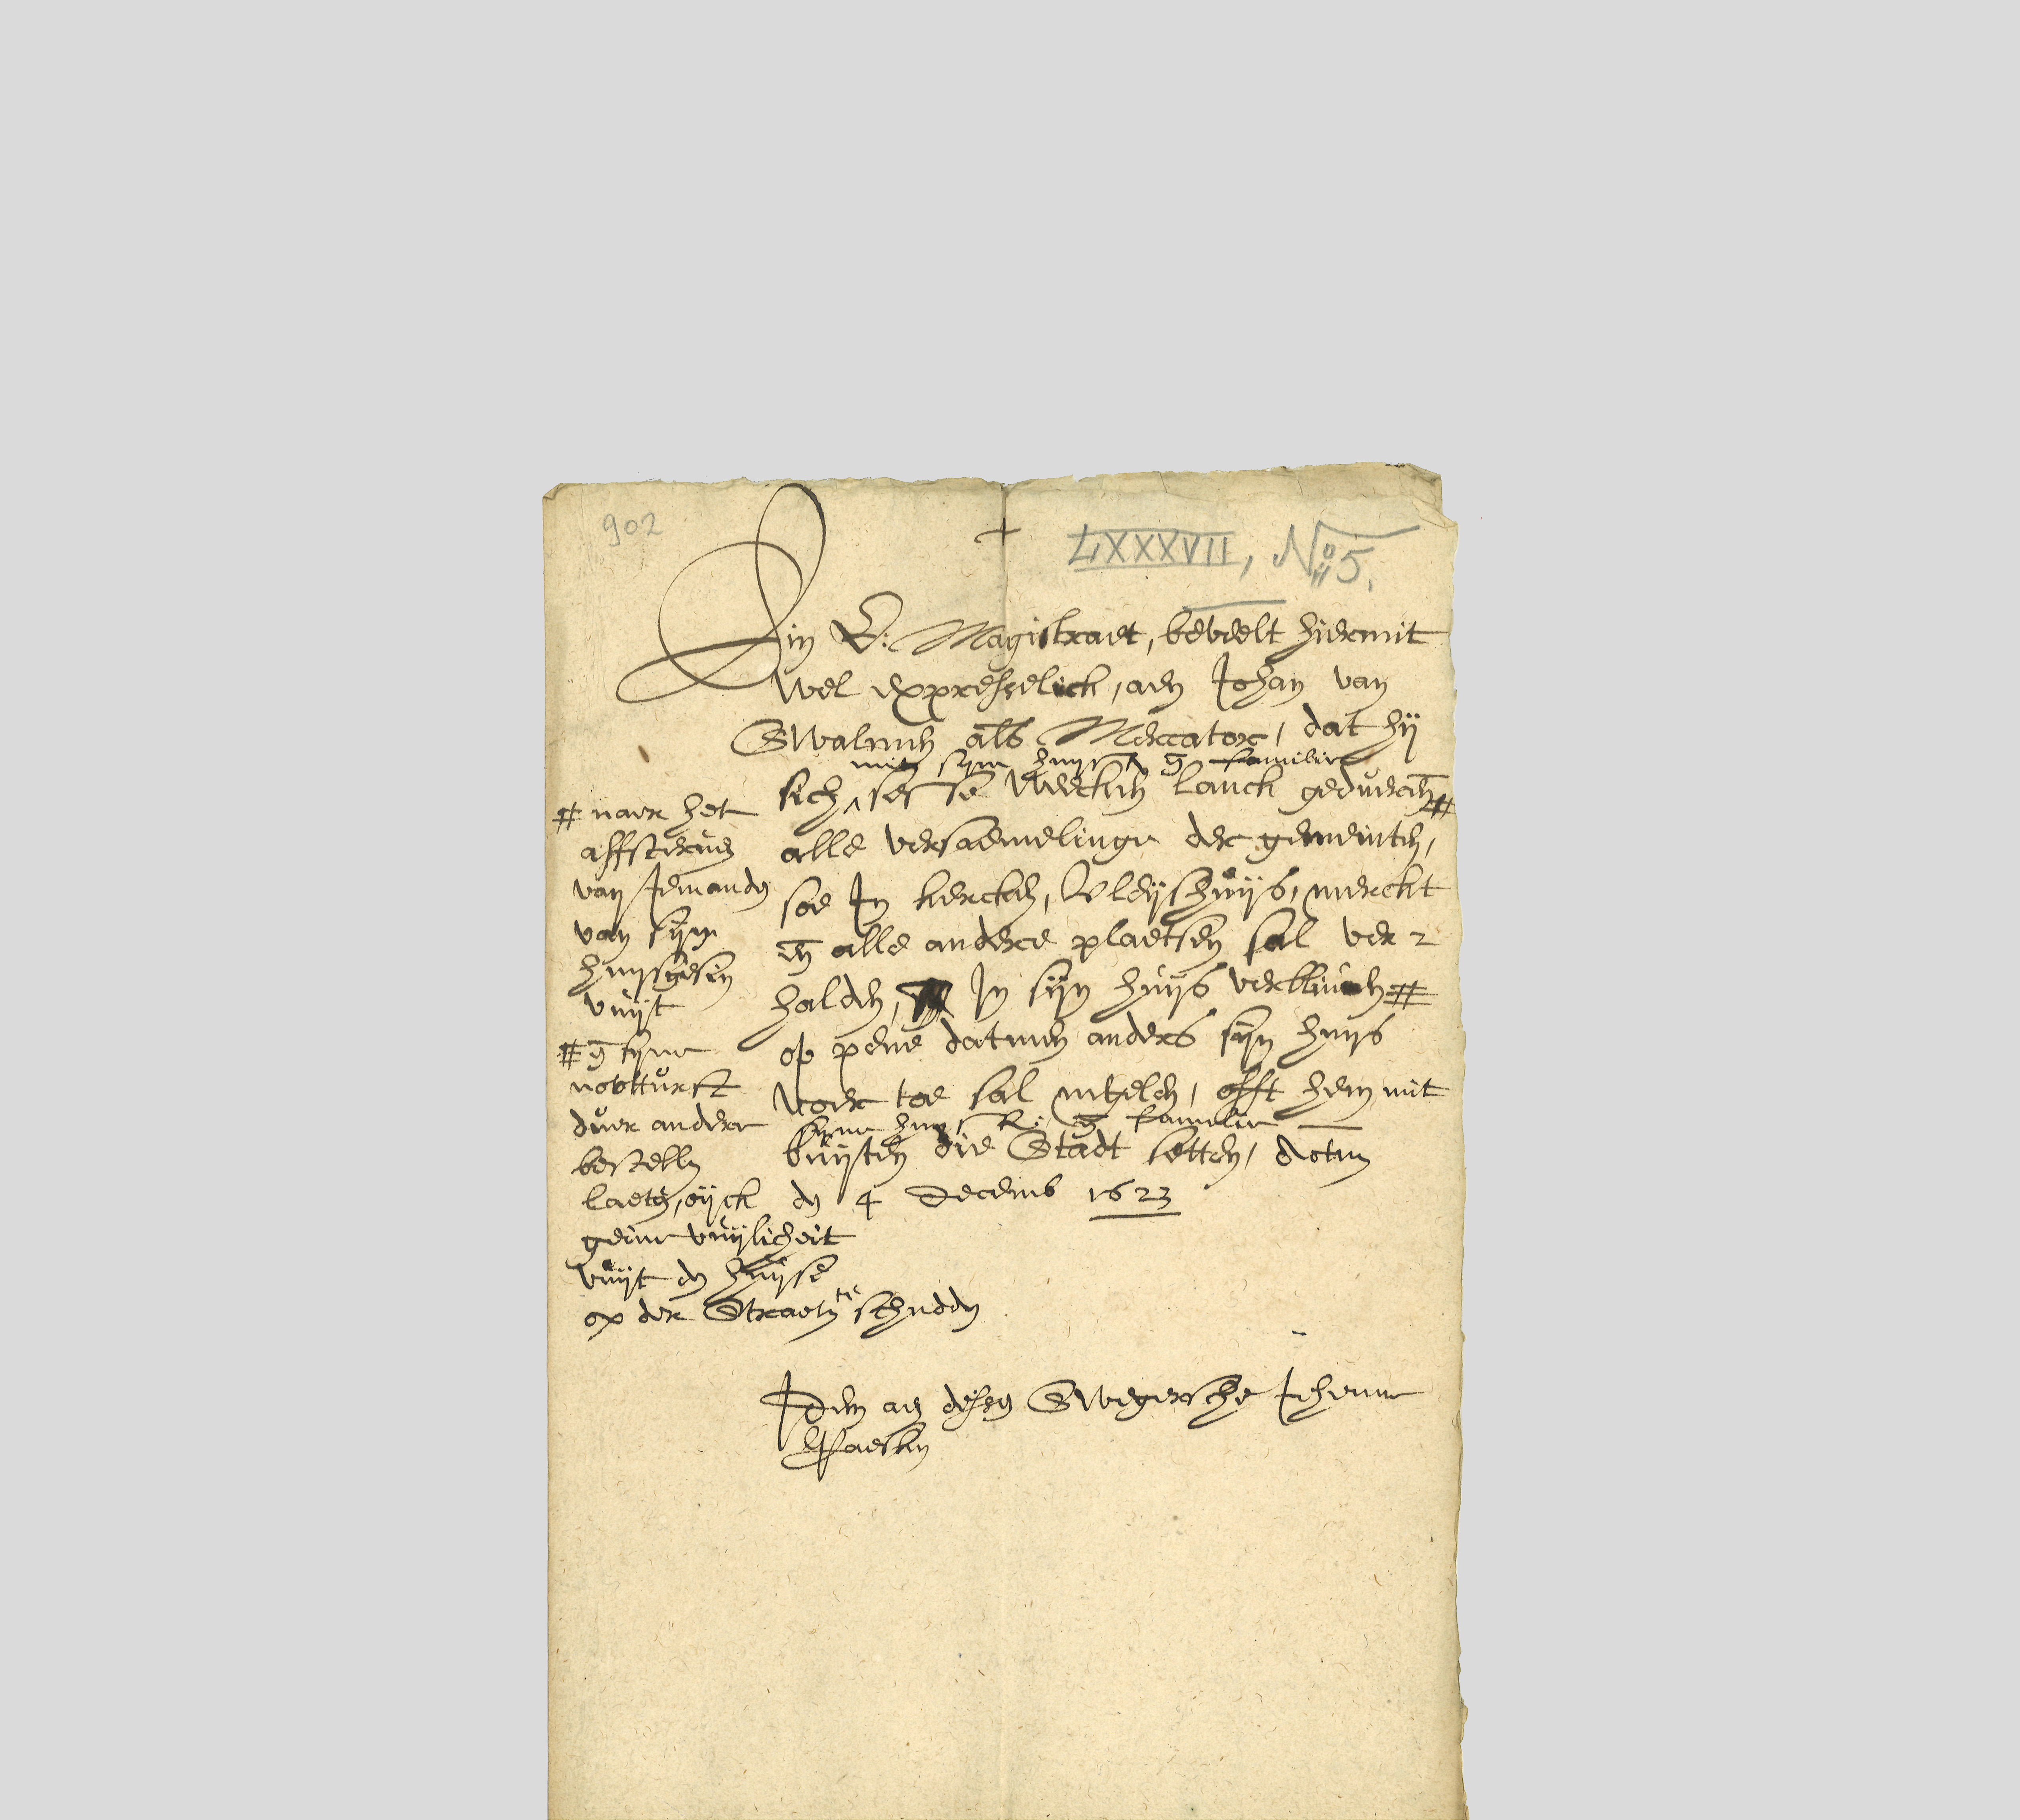 902
LXXXVII, No 5.
Ein E: Magistraet, beveelt hiermit
wel expresselick, aen Johan van
Swalmen als Mercator, dat hij
mit syne huysfr. en familie
sich sesse weecken lanck geduerend #
alle versaemelinge der gemeinten,
soe In kercken, Vleijshuijs, merckt
en alle andere plaetsen sal ver-
halden, In sijn huijs verblieven #
op pene datmen anders sijn huijs
voer toe sal negelen, offt hem mit
syne huysfr. en familie
buijten die Stadt setten, datum
den 4 Decemb 1623
# naer het
affsterven
van Jemanden
van sijn
huijsgesin
vuijt
# en syne
nootturft
duer andere
bestellen
laeten, oijck
geine vuijlicheit
vuijt den huijse
op der Straeten te schudden
Idem aen dessen Swegersche Jehenne
Paesken